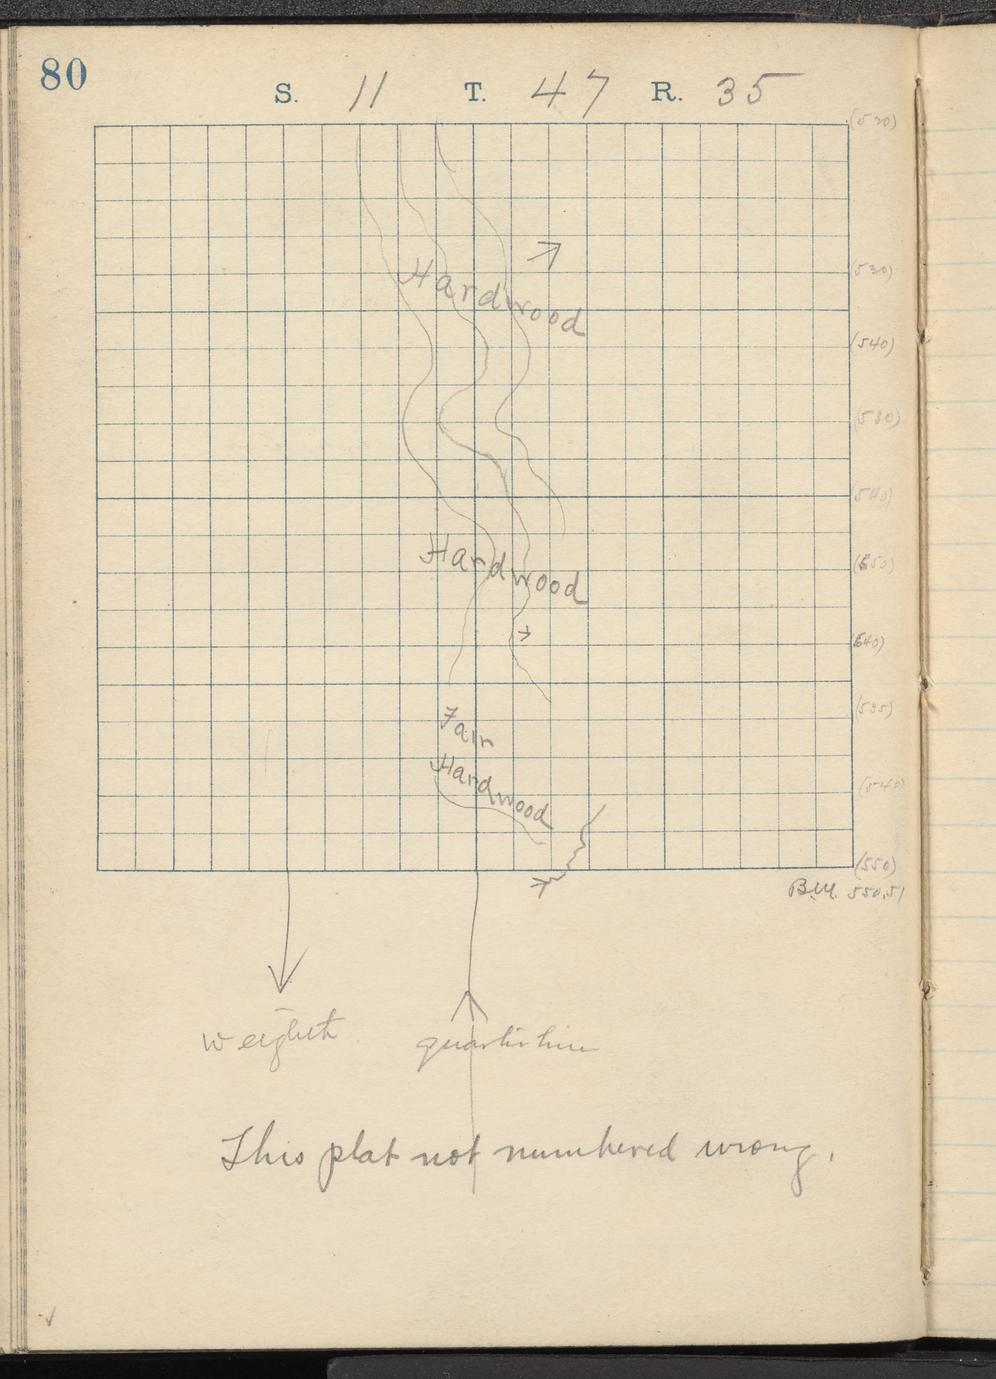 80
S. 11 T. 47 R. 35
(520)
Hardwood
(530)
(540)
(530)
(540)
Hardwood
(550)
(540)
Fair
(535)
Hardwood
(540)
(550)
B.M. 550.51
w eighth quarter line
This plat not numbered wrong.